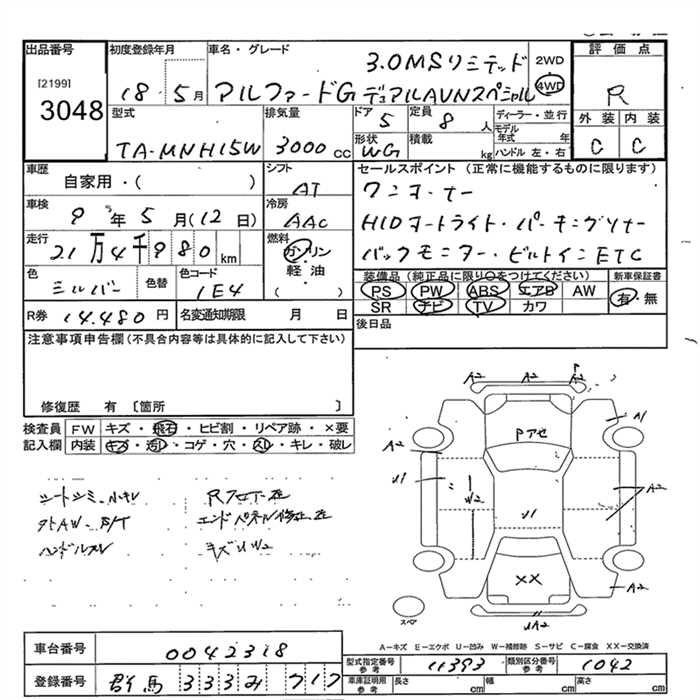 出品番号 初度登録年月 車名・グレード 評価点
[2199]
3048
18-5月
3.0MSリミテッド
アルファードG デュアルAVNスペシャル
2WD
4WD
R
型式 排気量 ドア 定員 ディーラー・並行 外装 内装
TA-MNH15W 3000cc 5 8人 モデル年式 年
形状 積載 ハンドル 左・右
WG kg
C C
車歴 シフト セールスポイント(正常に機能するものに限ります)
自家用・( ) AT
ワンオーナー
車検 冷房
9年5月(12日) AAC
HIDオートライト・パーキングソナー
走行 燃料
21万4千980km ガソリン・軽油( )
バックモニター・ビルトインETC
色 色替 色コード
シルバー 1E4
装備品(純正品に限り○をつけてください) 新車保証書
PS PW ABS エアB AW 有・無
SR ナビ TV カワ
R券 14,480円 名変通知期限 月 日
後日品
注意事項申告欄(不具合内容等は具体的に記入して下さい)
修復歴 有〔箇所 〕
検査員 FW キズ・飛石・ヒビ割・リペア跡・×要
記入欄 内装 キズ・汚レ・コゲ・穴・スレ・キレ・破レ
ハンドルスレ キズUW2
A2 A2 A2
A1
Pアセ
A2
U1
W2
U1
A2
××
A2
UA2
スペア
A-キズ E-エクボ U-凹み W-補修跡 S-サビ C-腐食 XX-交換済
車台番号 0042318
型式指定番号 参考 11393 類別区分番号 参考 1042
登録番号 群馬 333 み 717
車庫証明用 参考 長さ cm 幅 cm 高さ cm